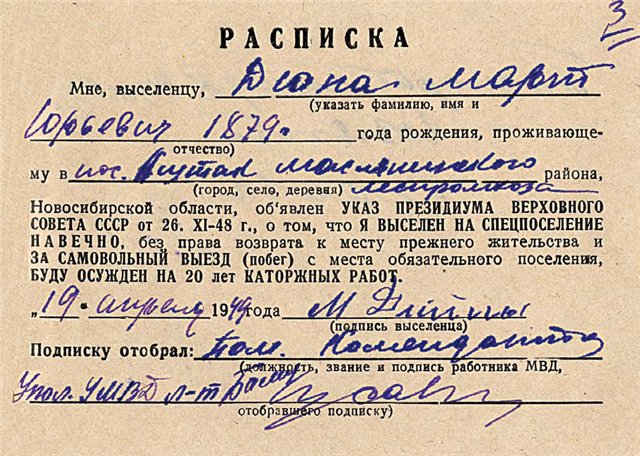 3
РАСПИСКА
Мне, выселенцу, Диана Март
(указать фамилию, имя и
Юрьевич 1879 г. года рождения, проживаще-
отчество)
му в пос. Маслянинского района,
(город, село, деревня) леспромхоза
Новосибирской области, об'явлен УКАЗ ПРЕЗИДИУМА ВЕРХОВНОГО
СОВЕТА СССР от 26. XI-48 г., о том, что Я ВЫСЕЛЕН НА СПЕЦПОСЕЛЕНИЕ
НАВЕЧНО, без права возврата к месту прежнего жительства и
ЗА САМОВОЛЬНЫЙ ВЫЕЗД (побег) с места обязательного поселения,
БУДУ ОСУЖДЕН НА 20 лет КАТОРЖНЫХ РАБОТ.
„19" апреля 1949 года М
(подпись выселенца)
Подписку отобрал: Пом. Коменданта
(должность, звание и подпись работника МВД,
Упол. УМВД л-т
отобравшего подписку)